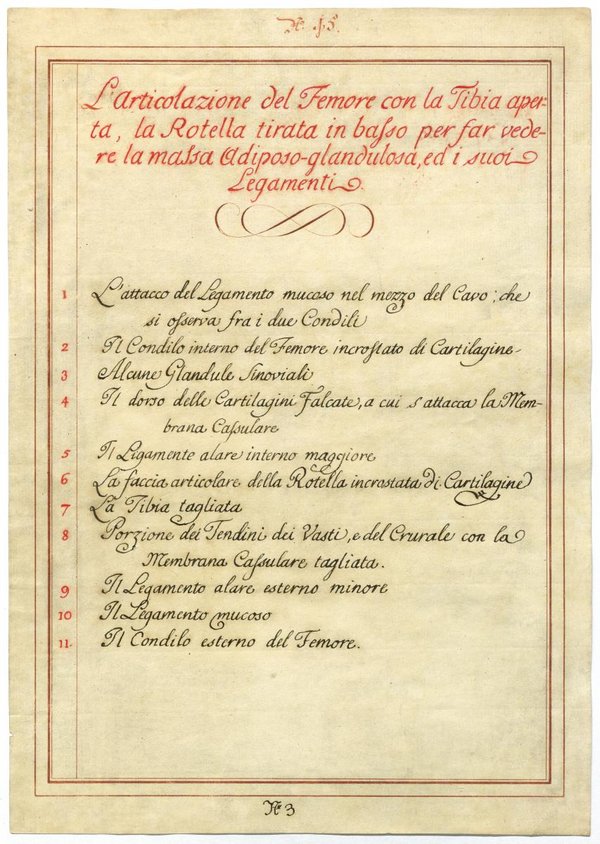 Nº. 15.
L'Articolazione del Femore con la Tibia aper-
ta, la Rotella tirata in basso per far vede-
re la massa Adiposo-glandulosa, ed i suoi
Legamenti.
1 L'attacco del Legamento mucoso nel mezzo del Cavo, che
si osserva fra i due Condili
2 Il Condilo interno del Femore incrostato di Cartilagine
3 Alcune Glandule Sinoviali
4 Il dorso delle Cartilagini Falcate, a cui s'attacca la Mem-
brana Cassulare
5 Il Legamente alare interno maggiore
6 La faccia articolare della Rotella incrostata di Cartilagine
7 La Tibia tagliata
8 Porzione dei Tendini dei Vasti, e del Crurale con la
Membrana Cassulare tagliata.
9 Il Legamento alare esterno minore
10 Il Legamento mucoso
11. Il Condilo esterno del Femore.
Nº 3